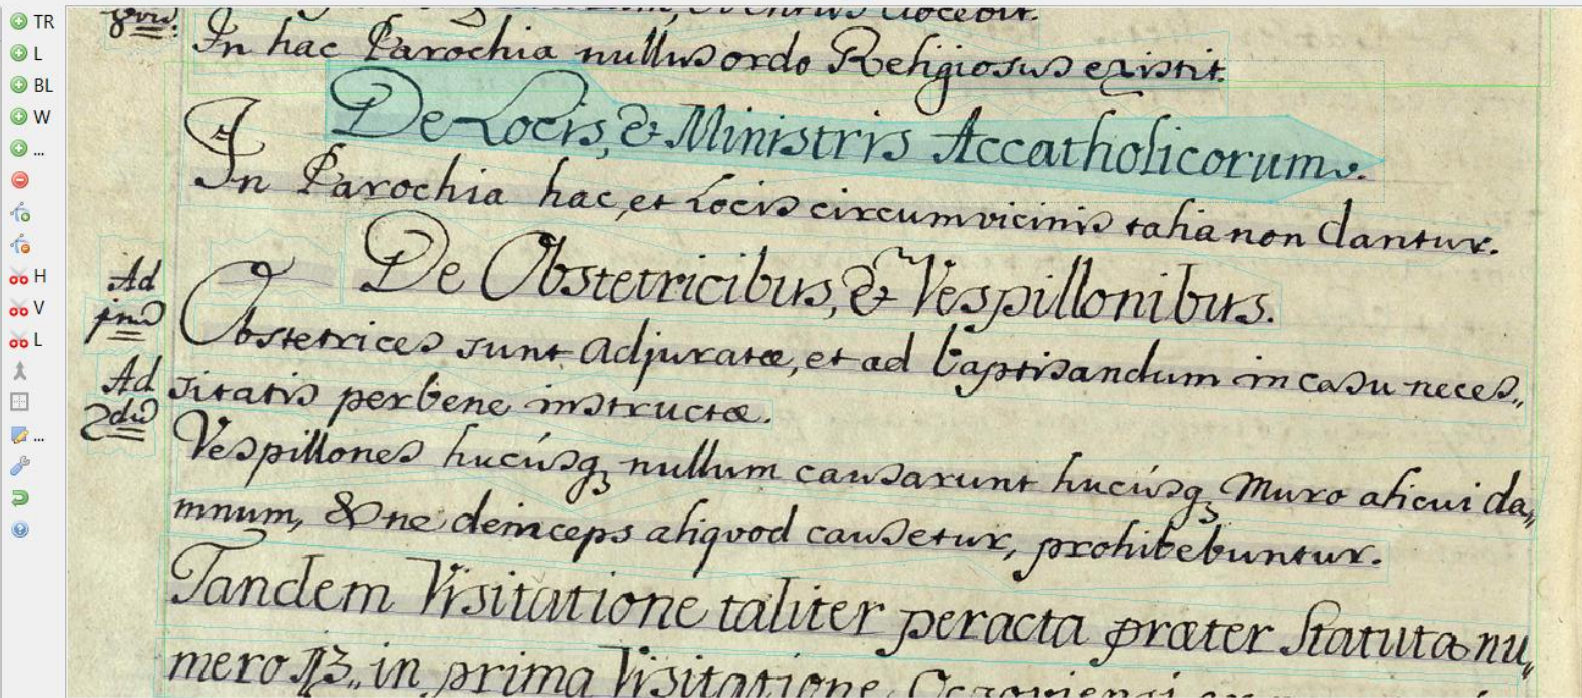 TR
L
BL
W
...
H
V
L
...
docebit.
In hac Parochia nullus ordo Religiosus existit.
De Locis, & Ministris Accatholicorum.
In Parochia hac, et Locis circumvicinis talia non dantur.
De Obstetricibus, & Vespillonibus.
Ad
Obstetrices sunt adjuratæ, et ad baptisandum in casu neces„
Ad
2dū
sitatis perbene instructæ.
Vespillones hucúsq; nullum causarunt hucúsq; Muro alicui da„
mnum, & ne deinceps aliquod causetur, prohibebuntur.
Tandem Visitatione taliter peracta præter Statuta nu„
mero 13„ in prima Visitatione